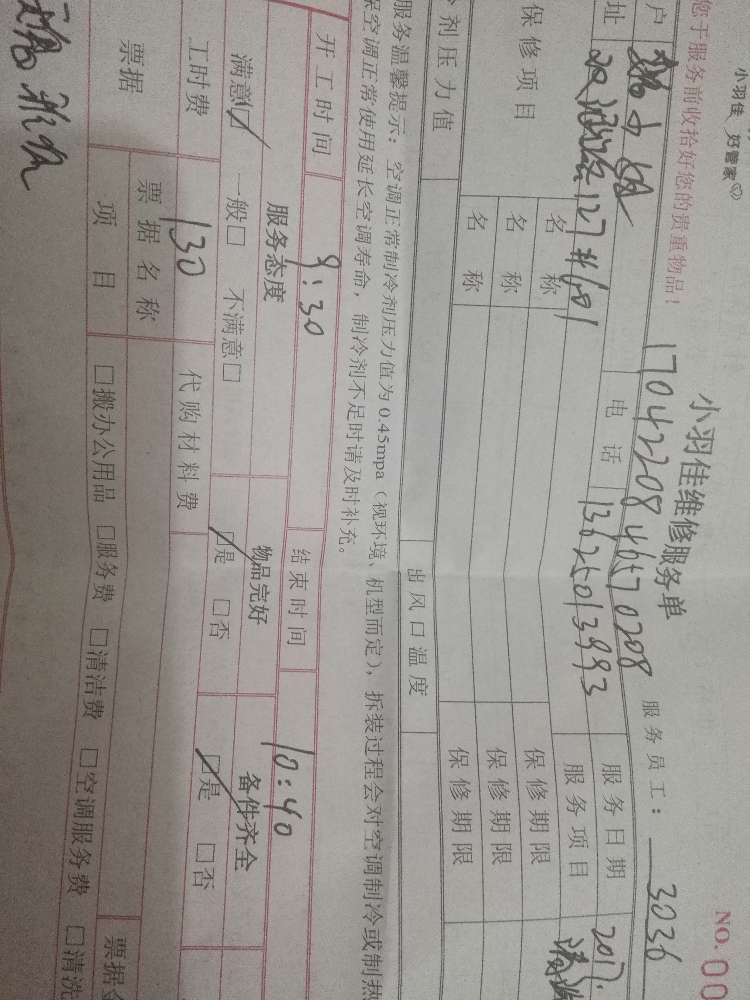 小羽佳 好管家
您于服务前收拾好您的贵重物品！
小羽佳维修服务单
NO. 00
1704220846570208
服务员工： 3036
户 小姐
电话 13625013993
服务日期 2017.
址 127#601
服务项目
保修项目
名称 保修期限
名称 保修期限
名称 保修期限
冷剂压力值 出风口温度
服务温馨提示：空调正常制冷剂压力值为0.45mpa（视环境、机型而定），拆装过程会对空调制冷或制热
保空调正常使用延长空调寿命，制冷剂不足时请及时补充。
开工时间 9:30 结束时间 10:40
服务态度 物品完好 备件齐全
满意☑ 一般□ 不满意□ ☑是 □否 ☑是 □否
工时费 130 代购材料费
票据 票据名称
项目 □搬办公用品 □服务费 □清洁费 □空调服务费 □清洗
票据